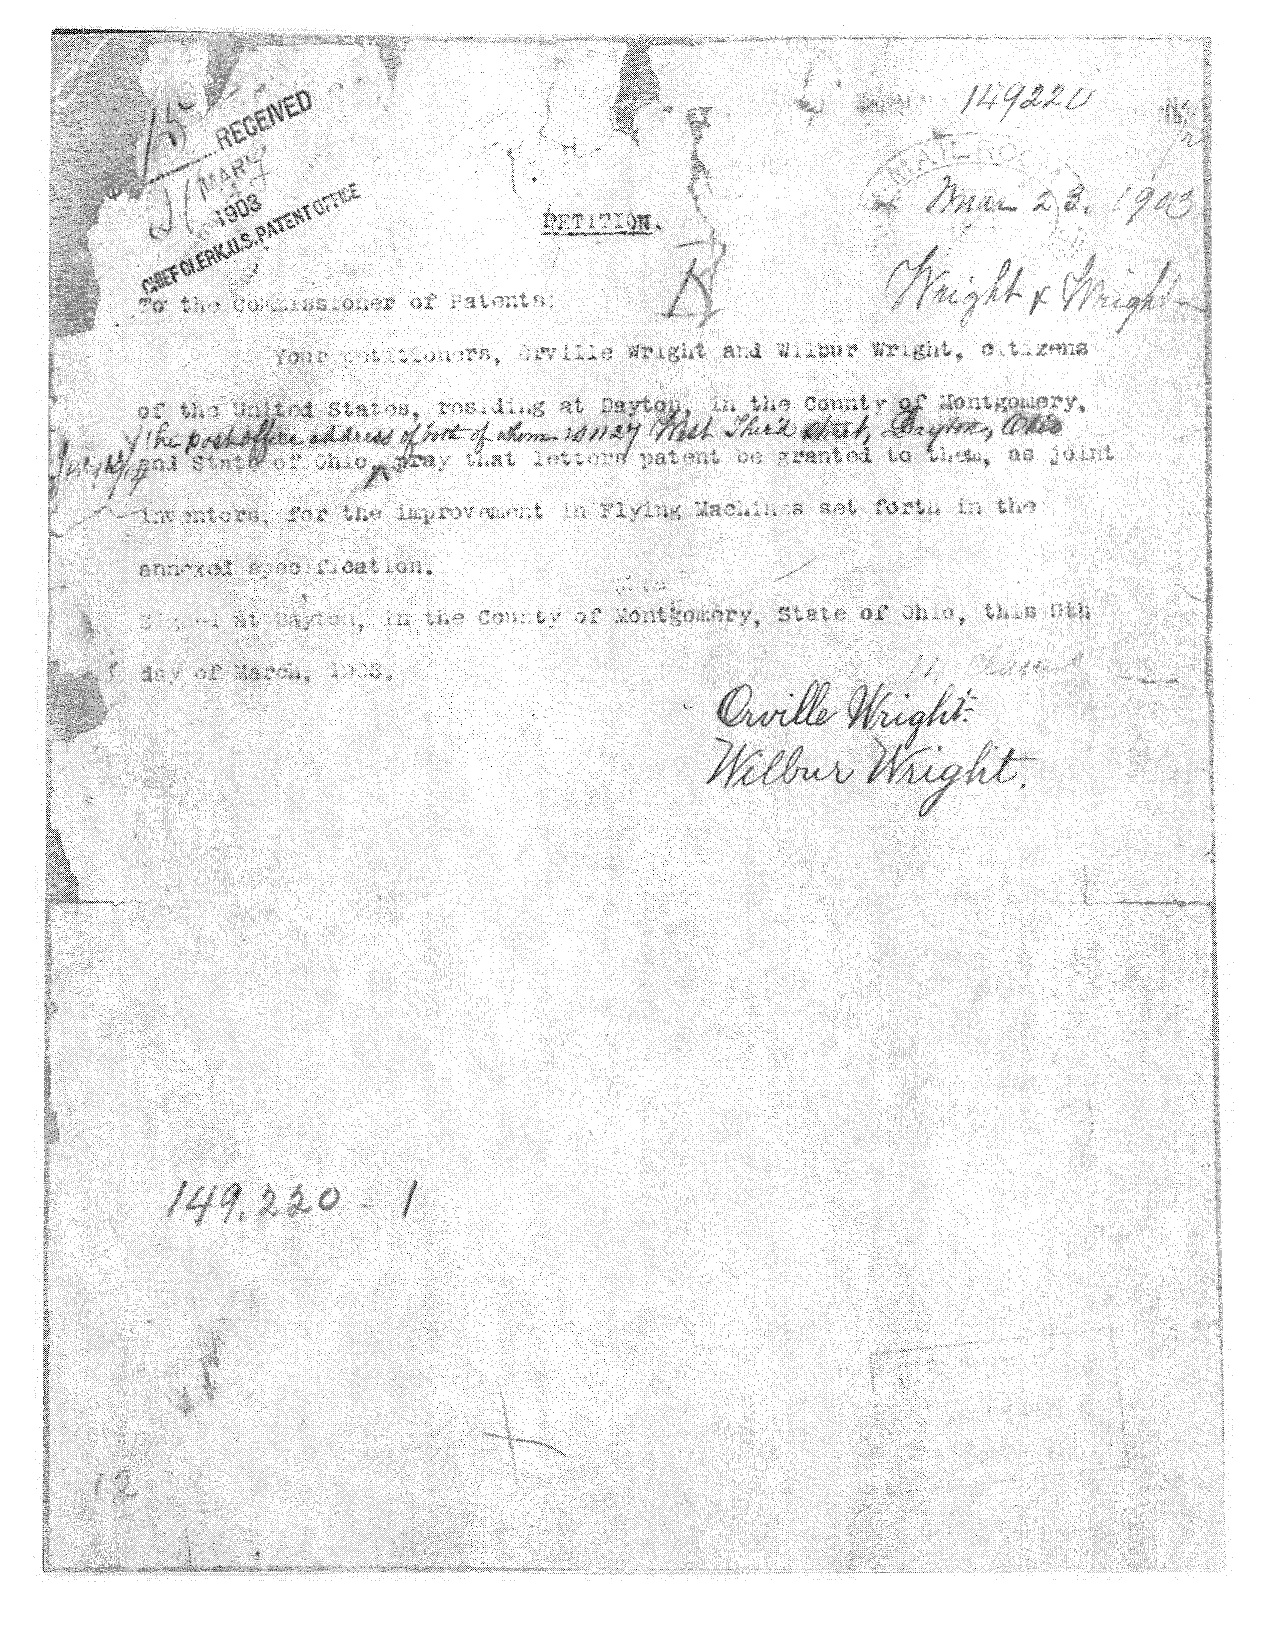 149220
15
RECEIVED
MAR
1903
CHIEF CLERK, U.S. PATENT OFFICE
MAIL ROOM
Mar 23. 1903
PETITION.
Wright & Wright
To the Commissioner of Patents:
Your petitioners, Orville Wright and Wilbur Wright, citizens
of the United States, residing at Dayton, in the County of Montgomery,
the post office address of both of whom is 1127 West Third street, Dayton, Ohio
and State of Ohio, pray that letters patent be granted to them, as joint
inventors, for the improvement in Flying Machines set forth in the
annexed specification.
Signed at Dayton, in the County of Montgomery, State of Ohio, this
day of March, 1903.
Orville Wright.
Wilbur Wright.
149,220 - 1
12